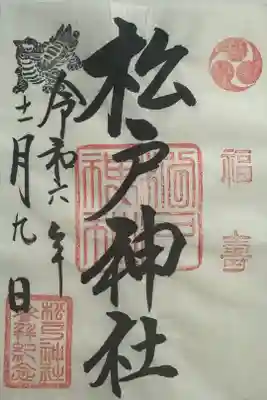 福壽
松戸神社
令和六年
十二月九日
松戸神社
参拝紀念